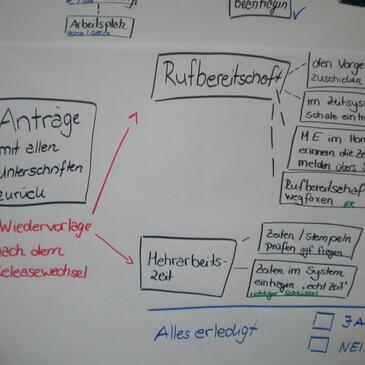 Arbeitsplatz
Home / Office
beantragen
Rufbereitschaft
den Vorge
zuschicken
im Zeitsys
schale eintr
ME im Hom
erinnern die Ze
melden übers
Rufbereitschaf
wegfaxen HR
Anträge
mit allen
Unterschriften
zurück
Wiedervorlage
nach dem
Releasewechsel
Mehrarbeits-
zeit
Zeiten / Stempeln
prüfen ggf fragen
Zeiten im System
eintragen "echt Zeit"
richtiger Schlüssel
Alles erledigt
JA
NEI